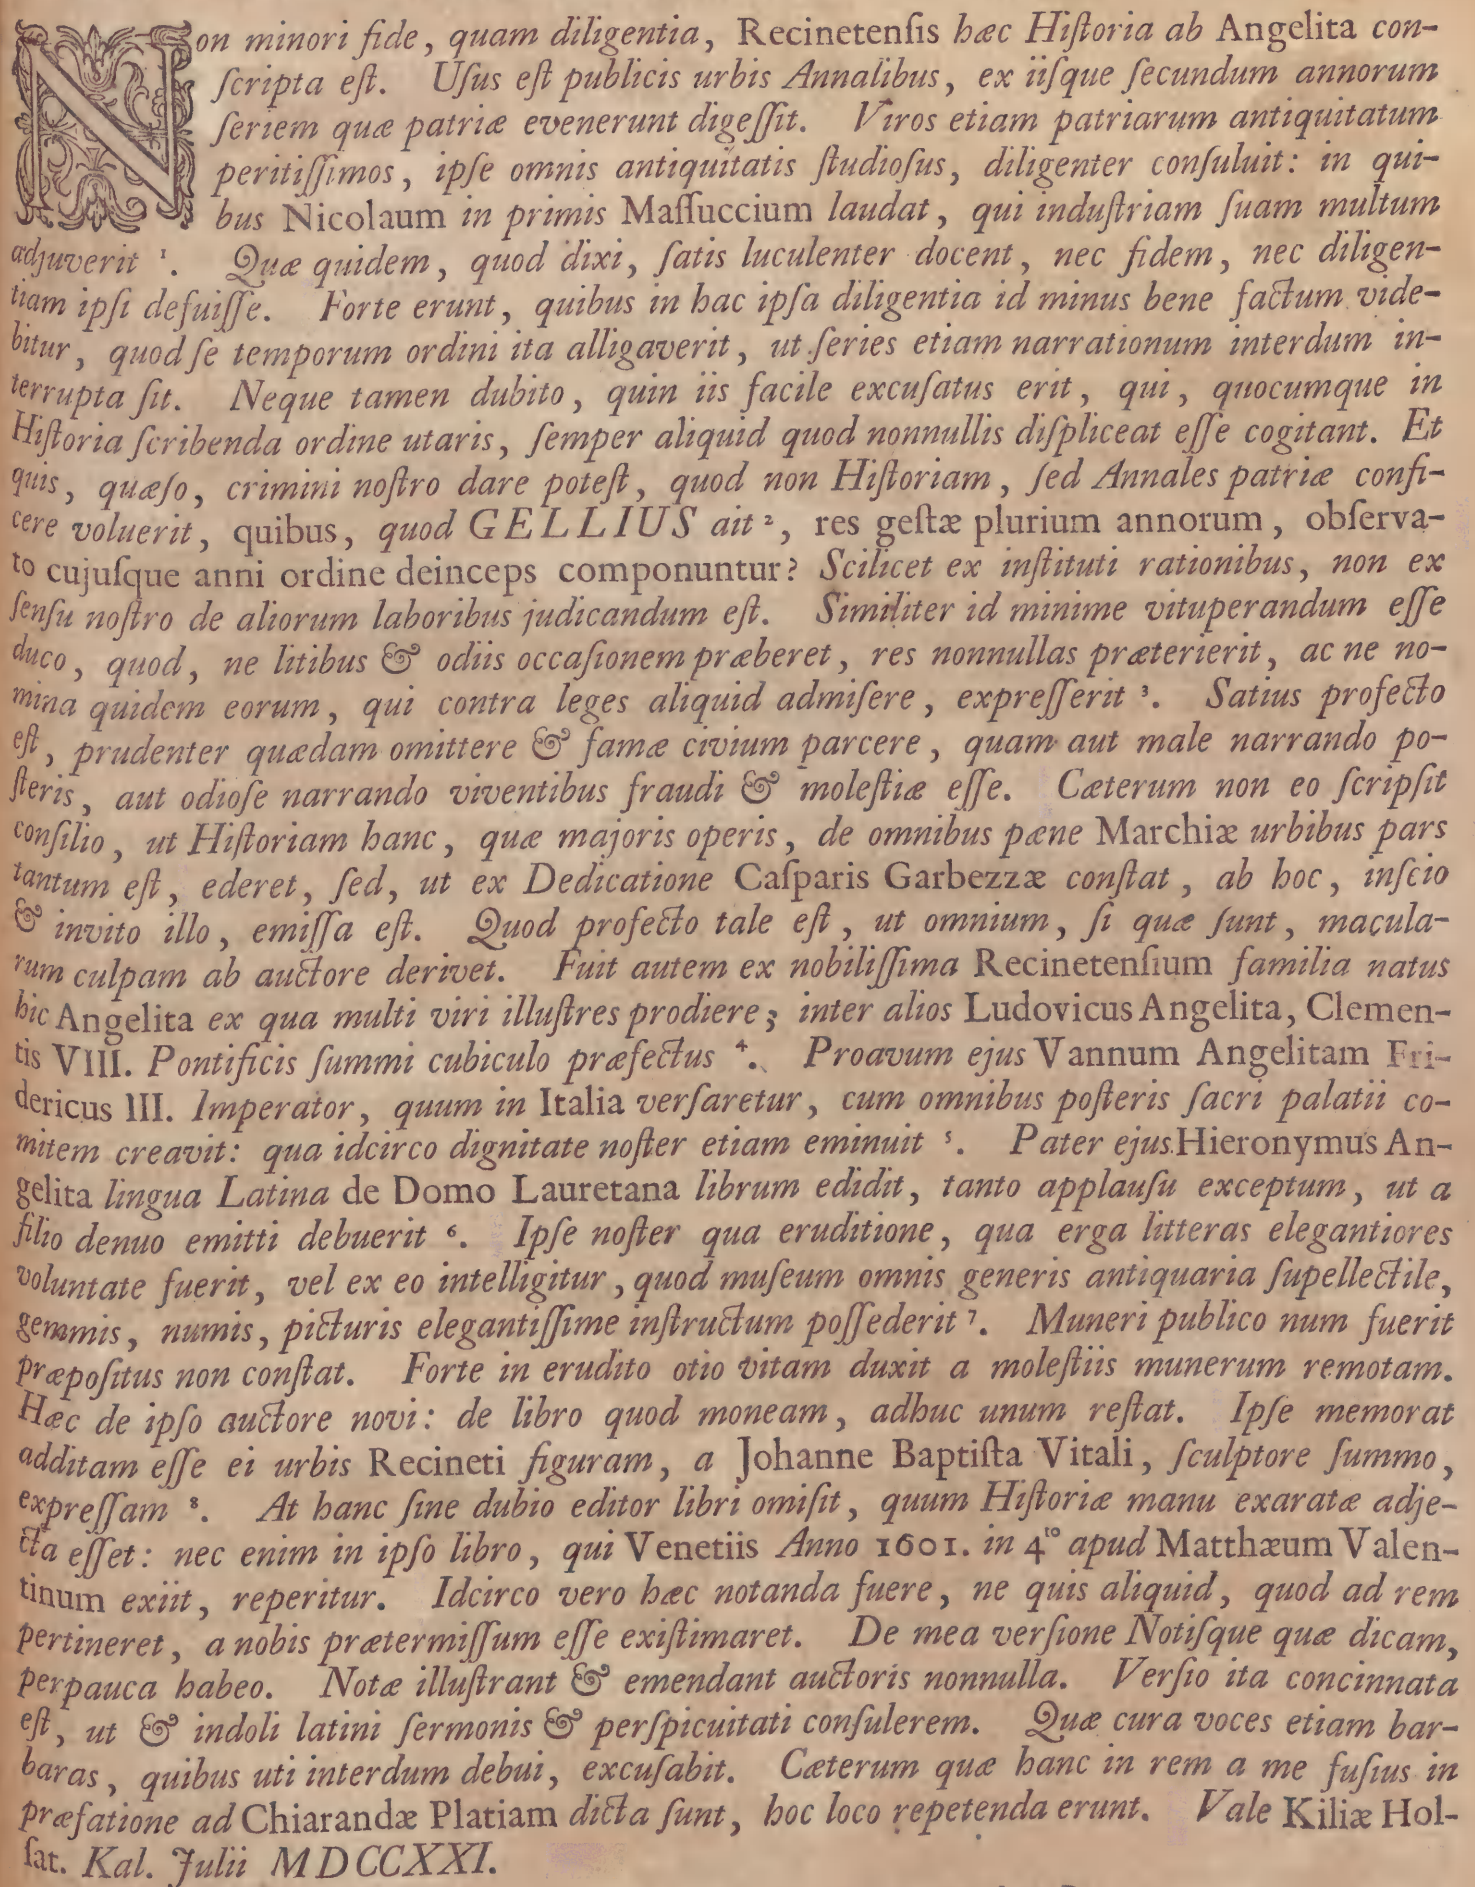 Non minori fide, quam diligentia, Recinetenſis hæc Hiſtoria ab Angelita con-
ſcripta eſt. Uſus eſt publicis urbis Annalibus, ex iiſque ſecundum annorum
ſeriem quæ patriæ evenerunt digeſſit. Viros etiam patriarum antiquitatum
peritiſſimos, ipſe omnis antiquitatis ſtudioſus, diligenter conſuluit: in qui-
bus Nicolaum in primis Maſſuccium laudat, qui induſtriam ſuam multum
adjuverit ¹. Quæ quidem, quod dixi, ſatis luculenter docent, nec fidem, nec diligen-
tiam ipſi defuiſſe. Forte erunt, quibus in hac ipſa diligentia id minus bene factum vide-
bitur, quod ſe temporum ordini ita alligaverit, ut ſeries etiam narrationum interdum in-
terrupta ſit. Neque tamen dubito, quin iis facile excuſatus erit, qui, quocumque in
Hiſtoria ſcribenda ordine utaris, ſemper aliquid quod nonnullis diſpliceat eſſe cogitant. Et
quis, quæſo, crimini noſtro dare poteſt, quod non Hiſtoriam, ſed Annales patriæ confi-
cere voluerit, quibus, quod GELLIUS ait ², res geſtæ plurium annorum, obſerva-
to cujuſque anni ordine deinceps componuntur? Scilicet ex inſtituti rationibus, non ex
ſenſu noſtro de aliorum laboribus judicandum eſt. Similiter id minime vituperandum eſſe
duco, quod, ne litibus & odiis occaſionem præberet, res nonnullas præterierit, ac ne no-
mina quidem eorum, qui contra leges aliquid admiſere, expreſſerit ³. Satius profecto
eſt, prudenter quædam omittere & famæ civium parcere, quam aut male narrando po-
ſteris, aut odioſe narrando viventibus fraudi & moleſtiæ eſſe. Cæterum non eo ſcripſit
conſilio, ut Hiſtoriam hanc, quæ majoris operis, de omnibus pæne Marchiæ urbibus pars
tantum eſt, ederet, ſed, ut ex Dedicatione Caſparis Garbezzæ conſtat, ab hoc, inſcio
& invito illo, emiſſa eſt. Quod profecto tale eſt, ut omnium, ſi quæ ſunt, macula-
rum culpam ab auctore derivet. Fuit autem ex nobiliſſima Recinetenſium familia natus
hic Angelita ex qua multi viri illuſtres prodiere; inter alios Ludovicus Angelita, Clemen-
tis VIII. Pontificis ſummi cubiculo præfectus ⁴. Proavum ejus Vannum Angelitam Fri-
dericus III. Imperator, quum in Italia verſaretur, cum omnibus poſteris ſacri palatii co-
mitem creavit: qua idcirco dignitate noſter etiam eminuit ⁵. Pater ejus Hieronymus An-
gelita lingua Latina de Domo Lauretana librum edidit, tanto applauſu exceptum, ut a
filio denuo emitti debuerit ⁶. Ipſe noſter qua eruditione, qua erga litteras elegantiores
voluntate fuerit, vel ex eo intelligitur, quod muſeum omnis generis antiquaria ſupellectile,
gemmis, numis, picturis elegantiſſime inſtructum poſſederit ⁷. Muneri publico num fuerit
præpoſitus non conſtat. Forte in erudito otio vitam duxit a moleſtiis munerum remotam.
Hæc de ipſo auctore novi: de libro quod moneam, adhuc unum reſtat. Ipſe memorat
additam eſſe ei urbis Recineti figuram, a Johanne Baptiſta Vitali, ſculptore ſummo,
expreſſam ⁸. At hanc ſine dubio editor libri omiſit, quum Hiſtoriæ manu exaratæ adje-
cta eſſet: nec enim in ipſo libro, qui Venetiis Anno 1601. in 4ᵗᵒ apud Matthæum Valen-
tinum exiit, reperitur. Idcirco vero hæc notanda fuere, ne quis aliquid, quod ad rem
pertineret, a nobis prætermiſſum eſſe exiſtimaret. De mea verſione Notiſque quæ dicam,
perpauca habeo. Notæ illuſtrant & emendant auctoris nonnulla. Verſio ita concinnata
eſt, ut & indoli latini ſermonis & perſpicuitati conſulerem. Quæ cura voces etiam bar-
baras, quibus uti interdum debui, excuſabit. Cæterum quæ hanc in rem a me fuſius in
præfatione ad Chiarandæ Platiam dicta ſunt, hoc loco repetenda erunt. Vale Kiliæ Hol-
ſat. Kal. Julii MDCCXXI.